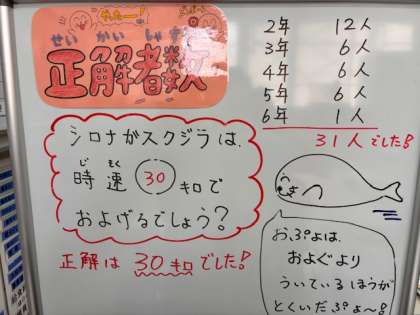 やったー!
せいかいしゃすう
正解者数
2年 12人
3年 6人
4年 6人
5年 6人
6年 1人
31人でした!
シロナガスクジラは、
じそく
時速 30 キロで
およげるでしょう?
正解は 30キロ でした!
おぷょは、
およぐより
ういているほうが
とくいだぷょ〜!